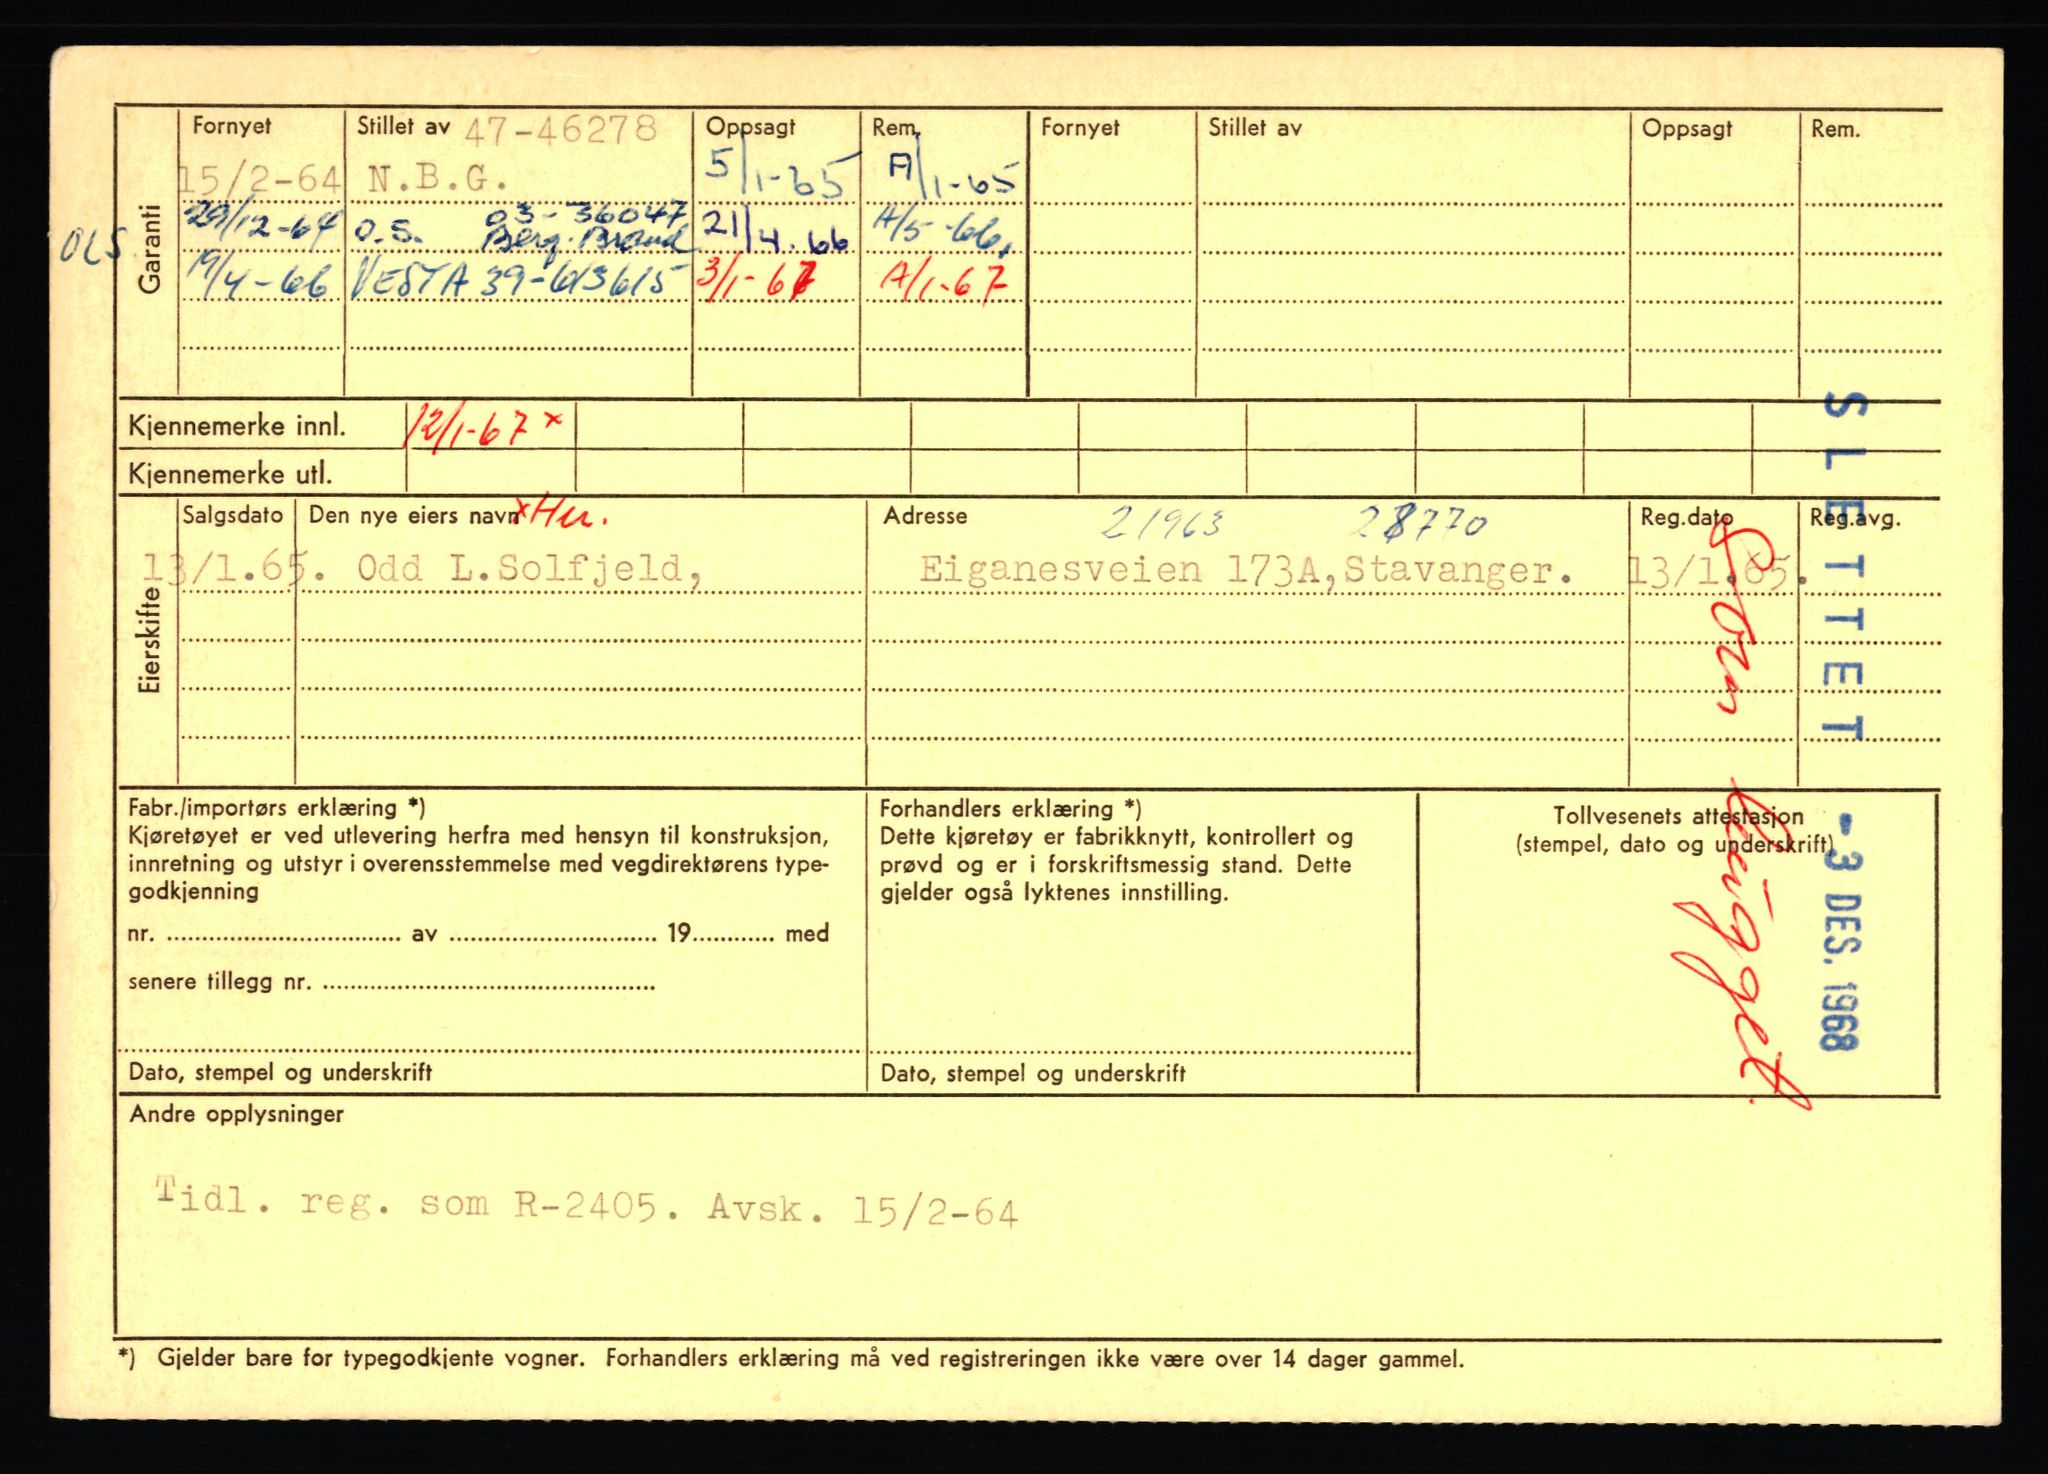 Garanti
Fornyet Stillet av 47-46278 Oppsagt Rem. Fornyet Stillet av Oppsagt Rem.
15/2-64 N.B.G. 5/1-65 A/1-65
29/12-64 O.S. 03-36047 Berg. Brand 21/4.66 A/5-66
OLS
19/4-66 VESTA 39-613615 3/1-67 A/1-67
Kjennemerke innl. 12/1-67 x
Kjennemerke utl.
Eierskifte
Salgsdato Den nye eiers navn x Adresse 21963 28770 Reg.dato Reg.avg.
13/1.65. Odd L.Solfjeld, Eiganesveien 173A, Stavanger. 13/1.65.
SLETTET
- 3 DES. 1968
Fabr./importørs erklæring *)
Kjøretøyet er ved utlevering herfra med hensyn til konstruksjon,
innretning og utstyr i overensstemmelse med vegdirektørens type-
godkjenning
nr. .......... av .......... 19.......... med
senere tillegg nr. ..........
Dato, stempel og underskrift
Forhandlers erklæring *)
Dette kjøretøy er fabrikknytt, kontrollert og
prøvd og er i forskriftsmessig stand. Dette
gjelder også lyktenes innstilling.
Dato, stempel og underskrift
Tollvesenets attestasjon
(stempel, dato og underskrift)
Andre opplysninger
Tidl. reg. som R-2405. Avsk. 15/2-64
*) Gjelder bare for typegodkjente vogner. Forhandlers erklæring må ved registreringen ikke være over 14 dager gammel.